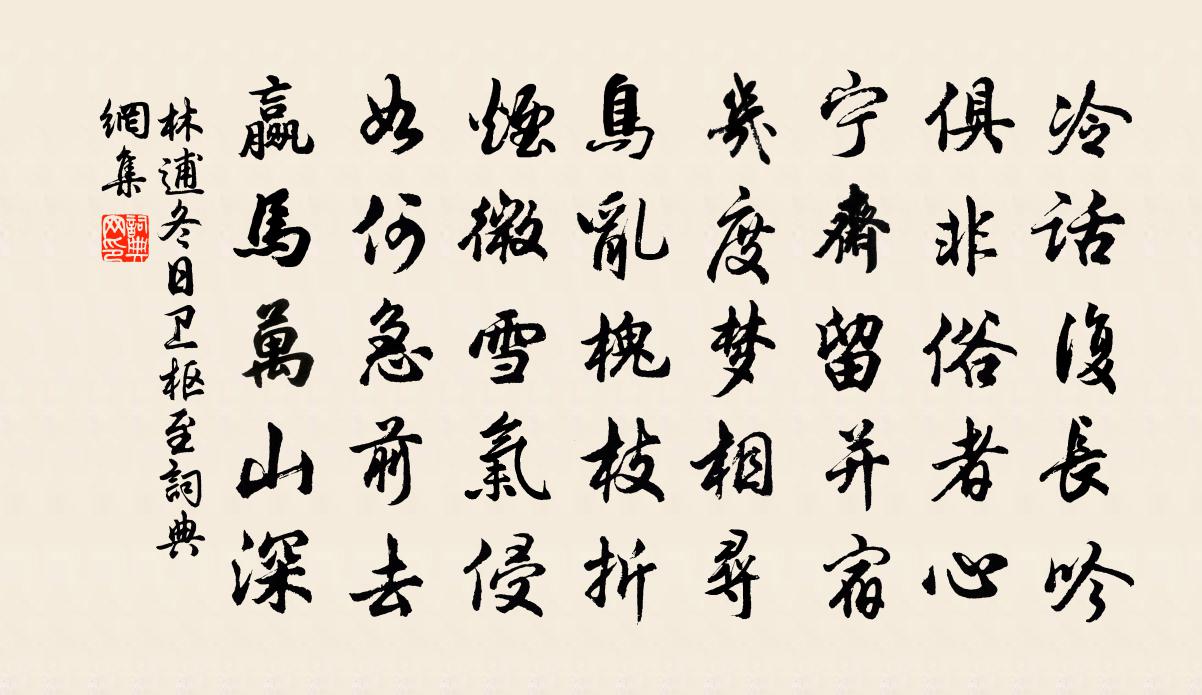 冷話復長吟
俱非俗者心
宁齋留并宿
幾度梦相尋
鳥亂槐枝折
煙微雪氣侵
如何急前去
羸馬萬山深
林逋冬日卫枢至詞典
網集
詞典
网印